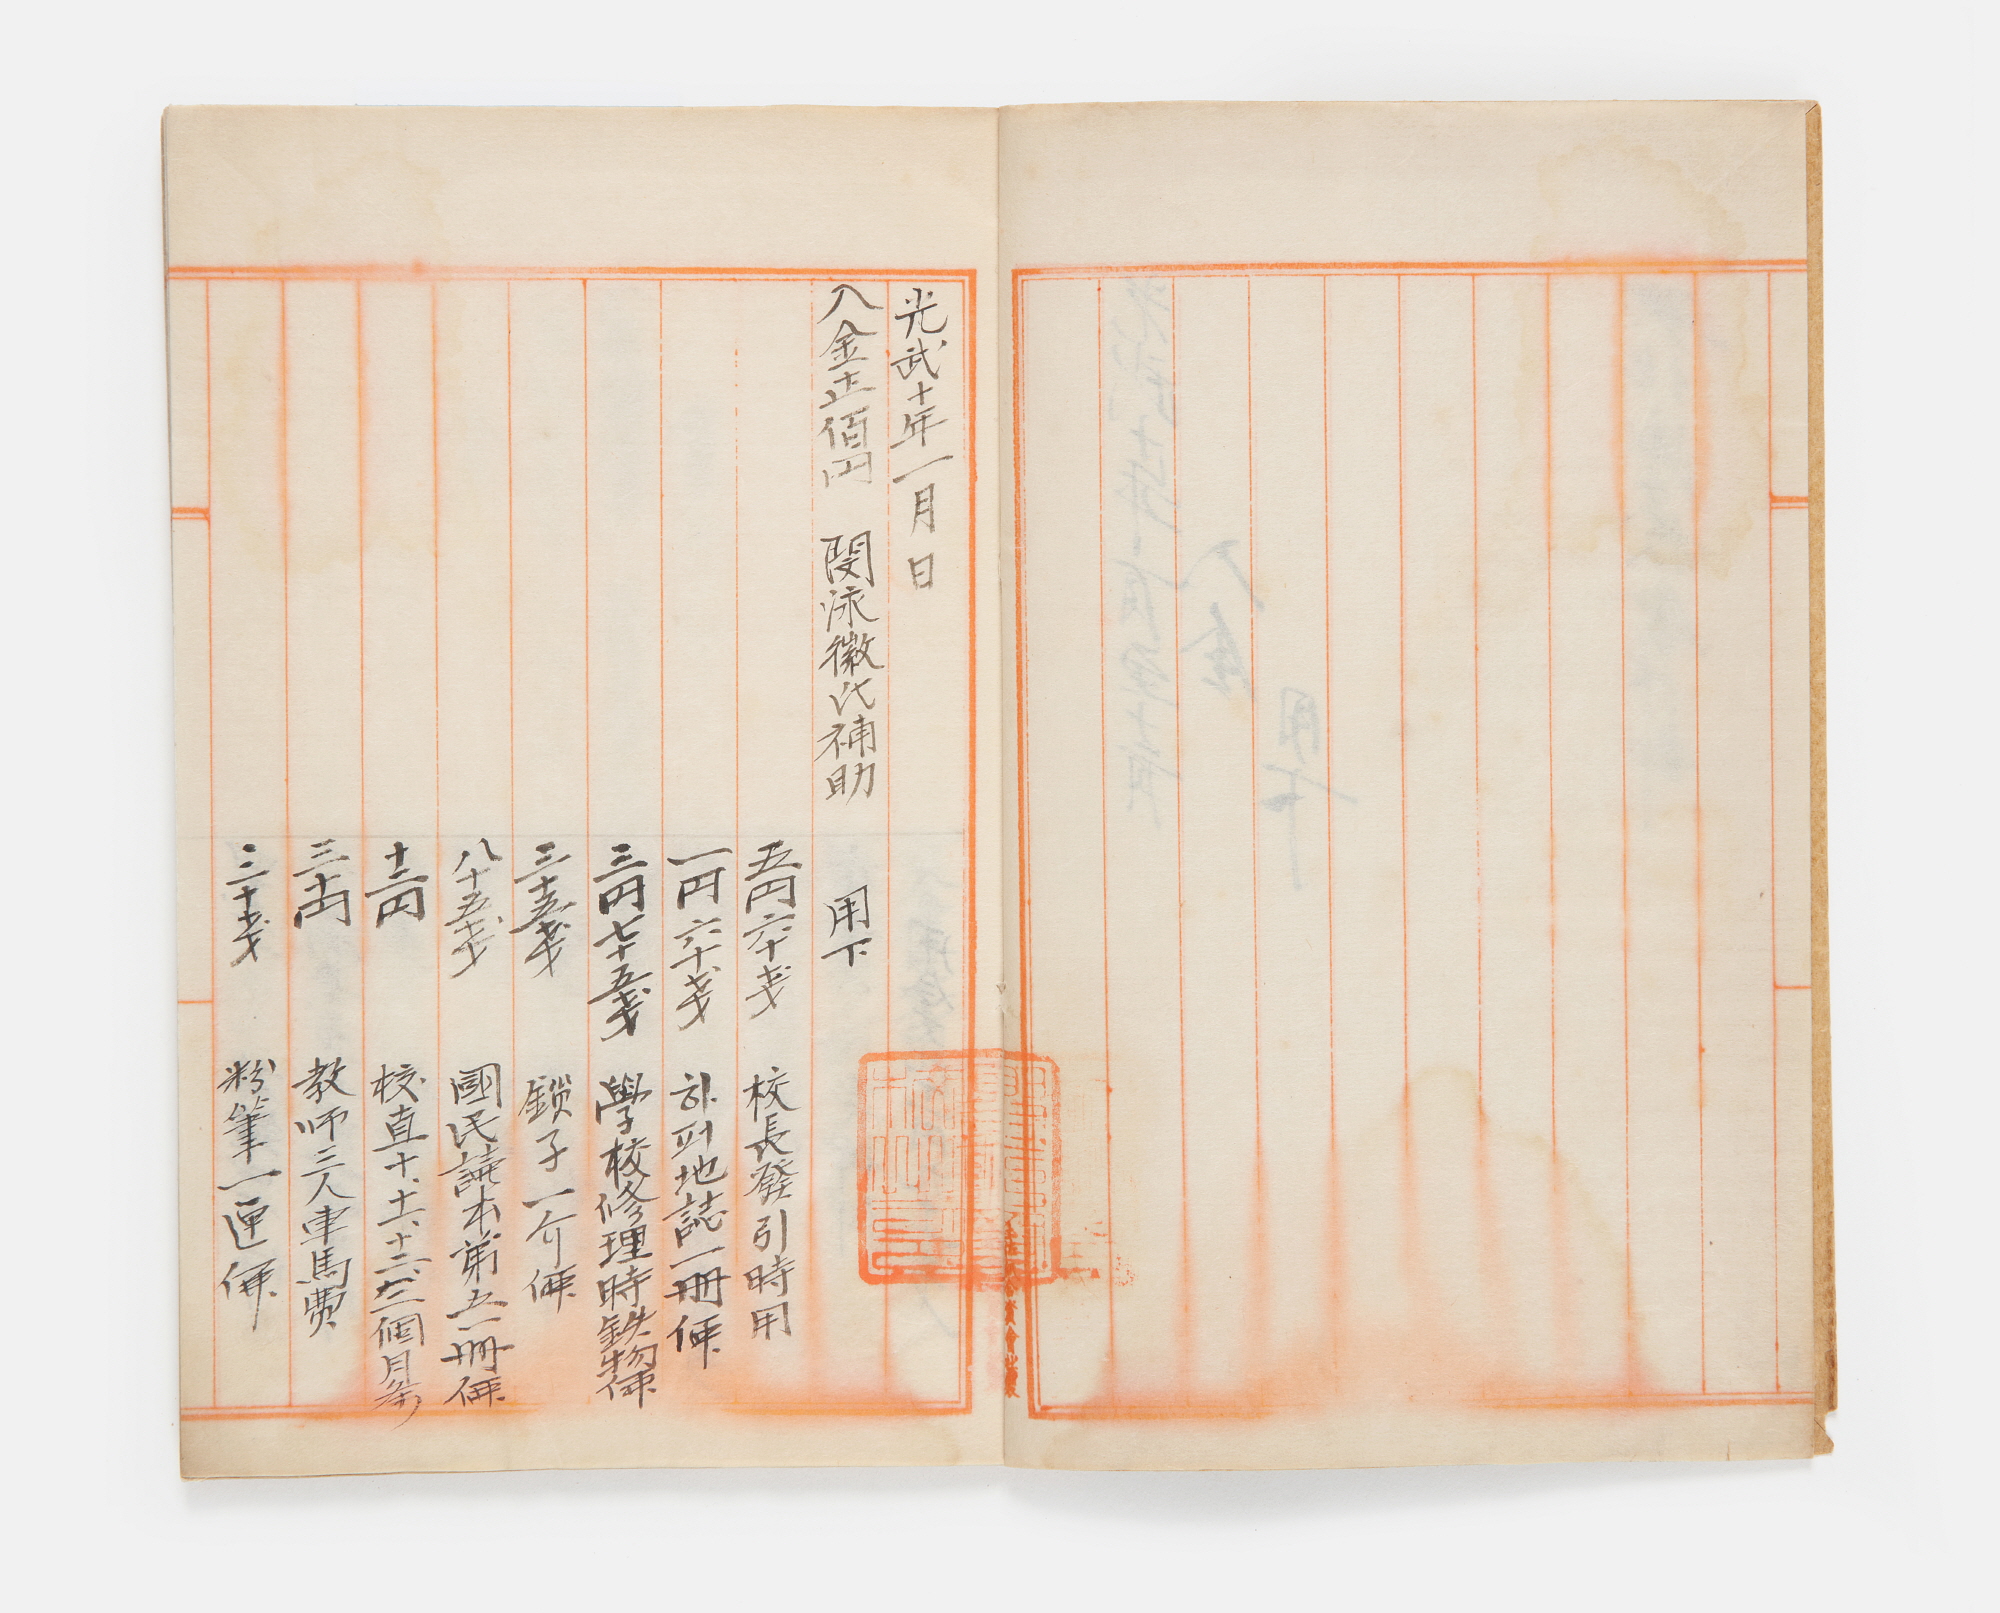 光武十年一月 日
入金正佰円 閔泳徽氏補助
用下
五円六十戔 校長發引時用
一円六十戔 하와地誌一冊価
三円七十五戔 學校修理時鉄物価
三十五戔 鎖子一介価
八十五戔 國民讀本第五一冊価
十二円 校直十、十一、十二、三個月條
三十円 教师三人車馬費
三十戔 粉筆一匣価